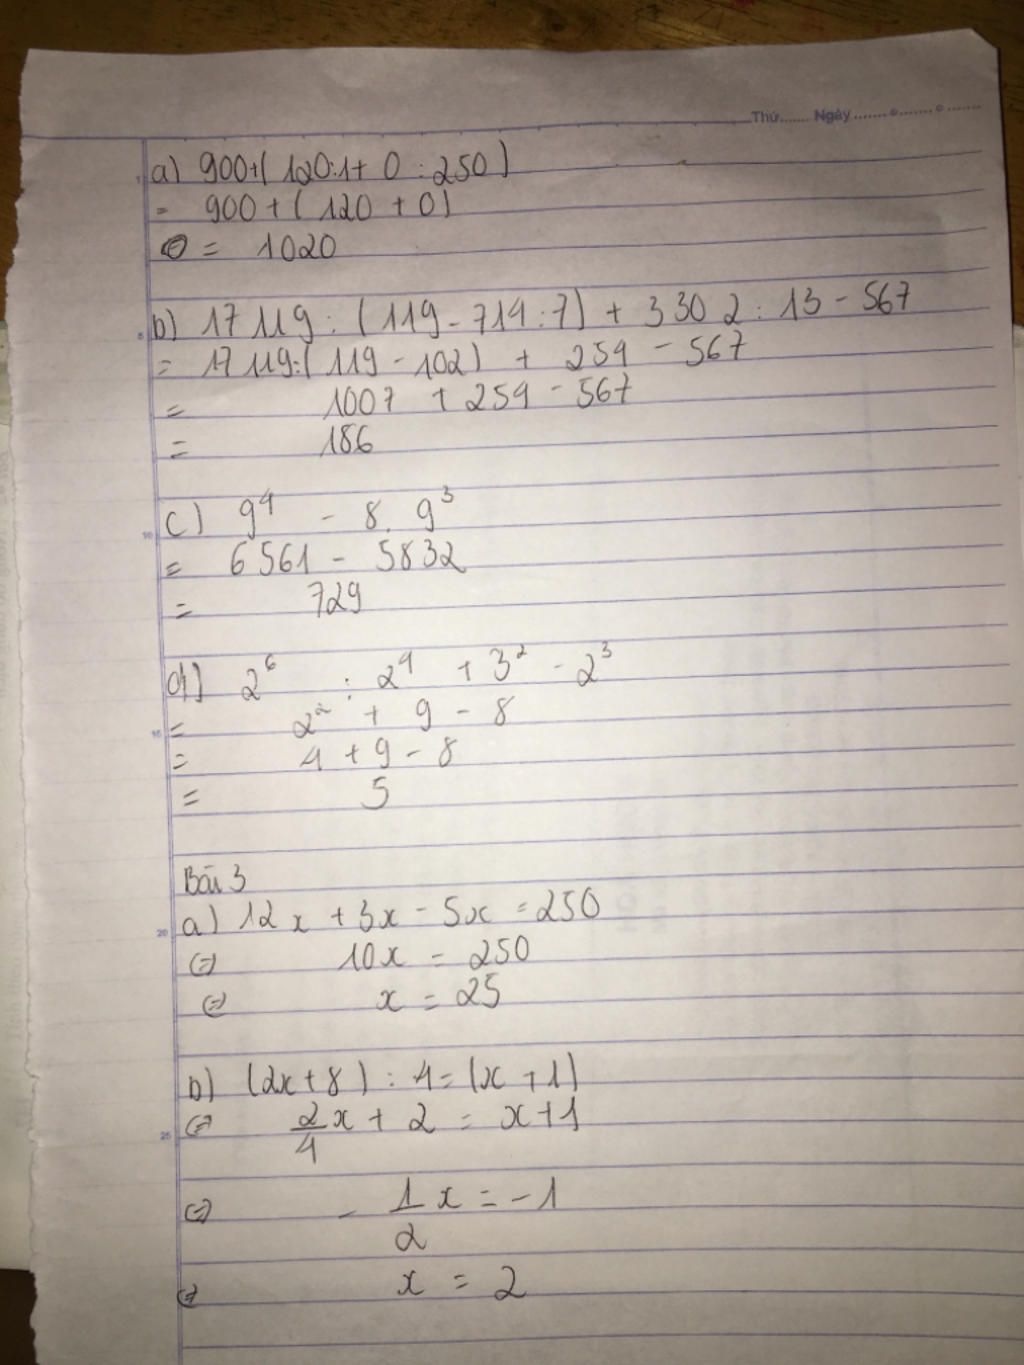 Thứ...... Ngày ....... o ....... o .......
a) 900+(120:1+0:250)
= 900+(120+0)
= 1020
b) 17119:(119-714:7)+3302:13-567
= 17119:(119-102)+254-567
= 1007+254-567
= 186
c) 9⁴ - 8.9³
= 6561 - 5832
= 729
d) 2⁶ : 2⁴ + 3² - 2³
= 2² + 9 - 8
= 4+9-8
= 5
Bài 3
a) 12x+3x-5x=250
(=) 10x = 250
(=) x = 25
b) (2x+8) : 4=(x+1)
(=) 2/4x + 2 = x+1
(=) - 1/2 x = -1
(=) x = 2